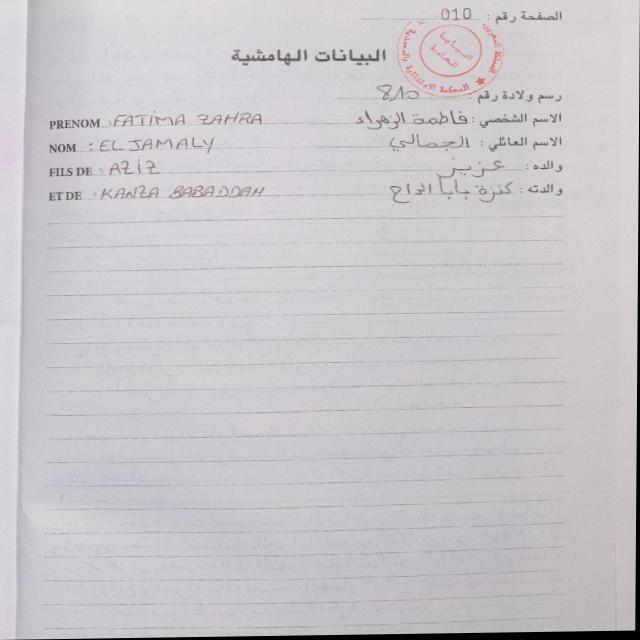 الصفحة رقم : 010
البيانات الهامشية
رسم ولادة رقم : 815
الاسم الشخصي : فاطمة الزهراء
PRENOM : FATIMA ZAHRA
الاسم العائلي : الجمالي
NOM : EL JAMALY
والده : عزيز
FILS DE : AZIZ
والدته : كنزة بابا الداح
ET DE : KANZA BABADDAH